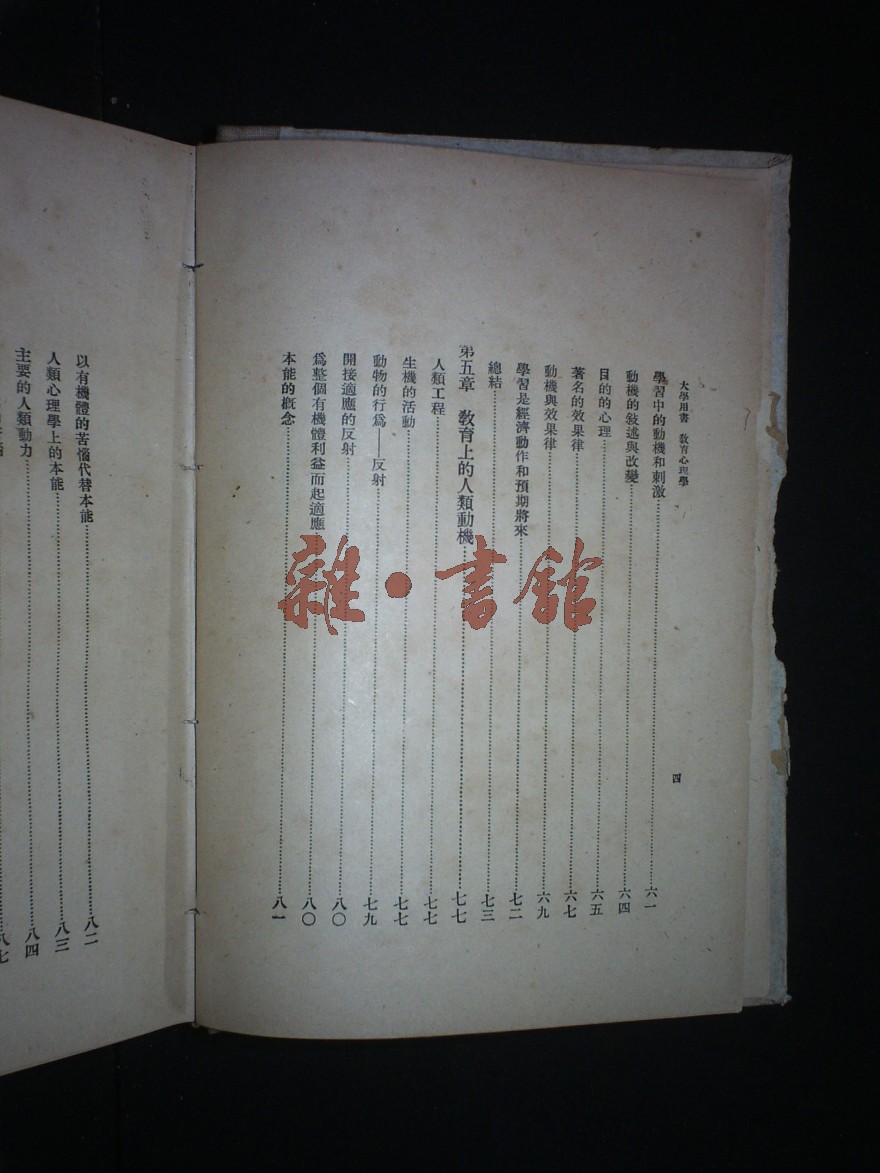 大學用書 教育心理學
四
學習中的動機和刺激……六一
動機的敍述與改變……六四
目的的心理……六五
著名的效果律……六七
動機與效果律……六九
學習是經濟動作和預期將來……七二
總結……七三
第五章 教育上的人類動機……七七
人類工程……七七
生機的活動……七七
動物的行爲——反射……七九
開接適應的反射……八〇
爲整個有機體利益而起適應……八〇
本能的概念……八一
以有機體的苦惱代替本能……八二
人類心理學上的本能……八三
主要的人類動力……八四
八七
雜·書館